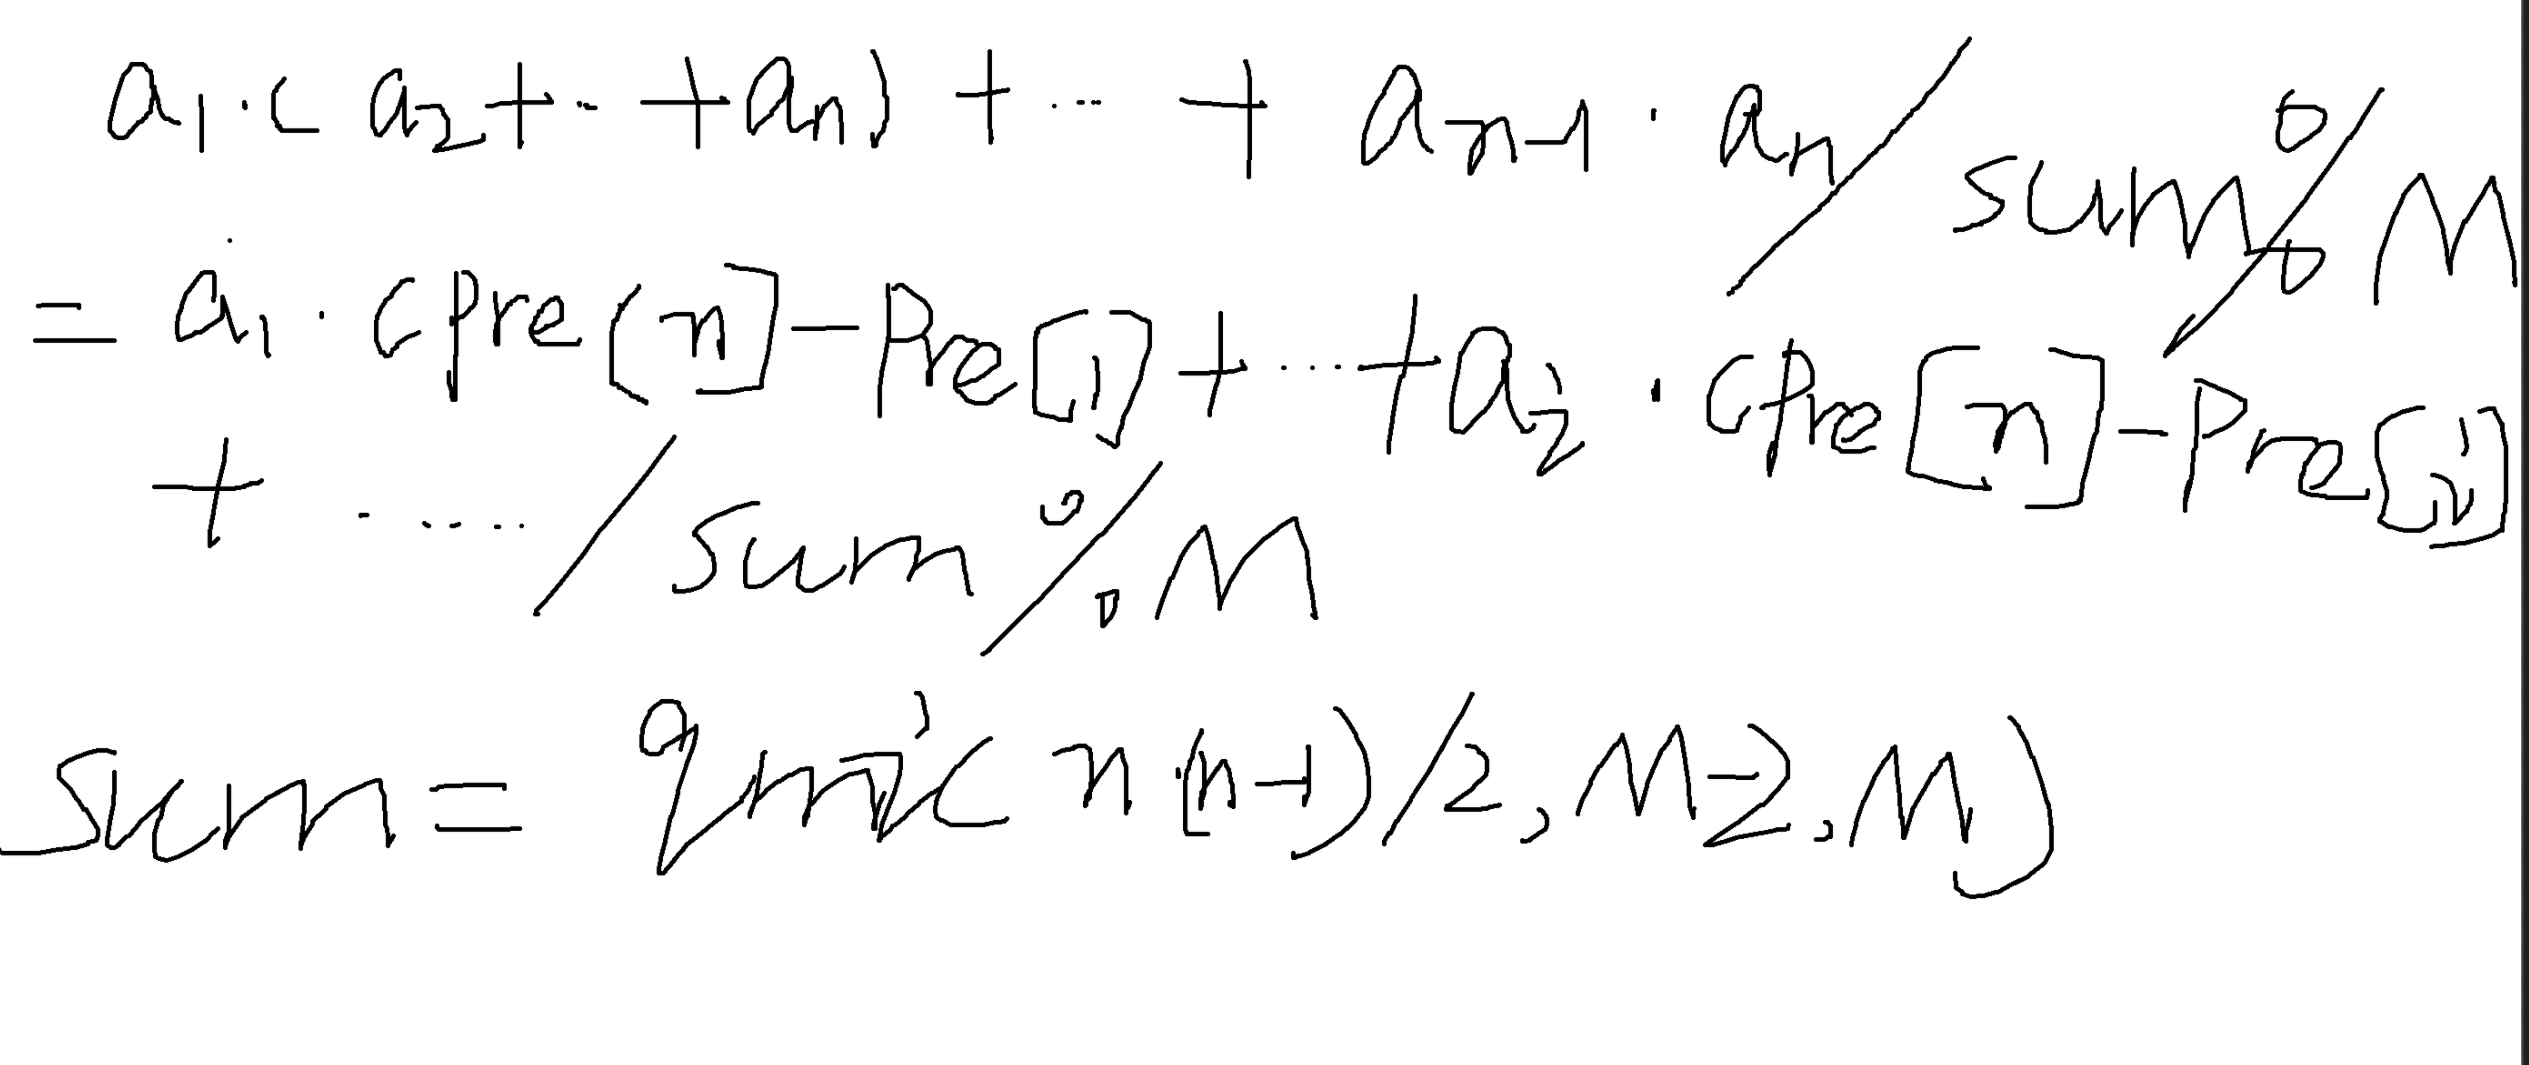 a₁·(a₂+··+aₙ)+···+aₙ₋₁·aₙ/sum%M
=a₁·(pre[n]-pre[1]+····+aᵢ·(pre[n]-pre[i])
+······/sum%M
sum=qmi(n(n-1)/2,M-2,M)